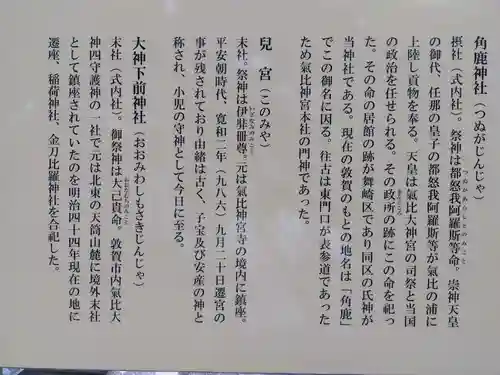 角鹿神社（つぬがじんじゃ）
摂社（式内社）。祭神は都怒我阿羅斯等命。崇神天皇
の御代、任那の皇子の都怒我阿羅斯等が氣比の浦に
上陸し貢物を奉る。天皇は氣比大神宮の司祭と当国
の政治を任せられる。その政所の跡にこの命を祀っ
た。その命の居館の跡が舞崎区であり同区の氏神が
当神社である。現在の敦賀のもとの地名は「角鹿」
でこの御名に因る。往古は東門口が表参道であった
ため氣比神宮本社の門神であった。
兒宮（このみや）
末社。祭神は伊弉冊尊。元は氣比神宮寺の境内に鎮座。
平安朝時代、寛和二年（九八六）九月二十日遷宮の
事が残されており由緒は古く、子宝及び安産の神と
称され、小児の守神として今日に至る。
大神下前神社（おおみわしもさきじんじゃ）
末社（式内社）。御祭神は大己貴命。敦賀市内氣比大
神四守護神の一社で元は北東の天筒山麓に境外末社
として鎮座されていたのを明治四十四年現在の地に
遷座、稲荷神社、金刀比羅神社を合祀した。